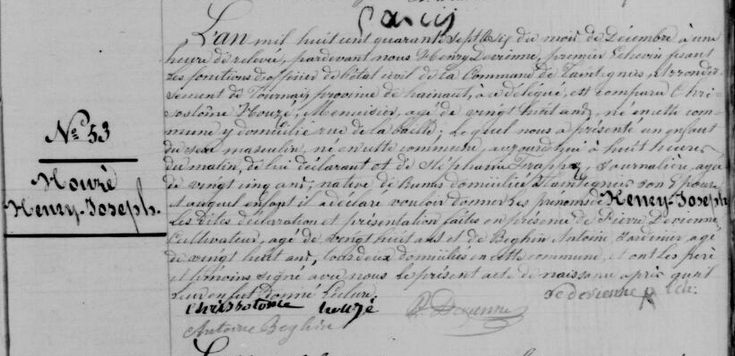 L'an mil huit cent quarante sept le six du mois de Décembre à une
heure de relevée, pardevant nous Henry Devienne, premier Echevin fesant
Les fonctions d'officier de l'état civil de La Commune de Taintignies, Arrondis-
sement de Tournai, province de hainaut, à ce délégué, est comparu Chri-
sostôme Houzé, Menuisier, agé de vingt huit ans, né en cette com-
mune y domicilié rue de la ; Lequel nous a présenté un enfant
du sexe masculin, né en cette commune, aujourd'hui à huit heures
du matin, de lui déclarant et de Stéphanie , Journalière, agée
de vingt cinq ans, native de Rumes domiciliée à Taintignies son Epouse
et auquel enfant il a déclaré vouloir donner Les prénoms de Henry-Joseph.
Les dites déclaration et présentation faites en présence de Pierre Devienne
Cultivateur, agé de vingt huit ans et de Beghin Antoine, Jardinier agé
de vingt huit ans, tous deux domiciliés en cette commune, et ont les père
et témoins signé avec nous le présent acte de naissance après qu'il
Leur en fut Donné Lecture.
N° 53
Houzé
Henry-Joseph.
Chrisostome houzé
P. Devienne
h Devienne Ech.
Antoine Beghin